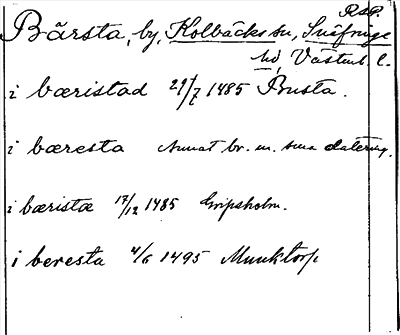 R.S.P.
Bärsta, by, Kolbäcks sn, Snäfringe
hd, Västml. l.
i bæristad 29/7 1485 Busta.
i bæresta Annat br. m. sma datering.
i bærista 17/12 1485 Gripsholm.
i beresta 4/6 1495 Munktorp